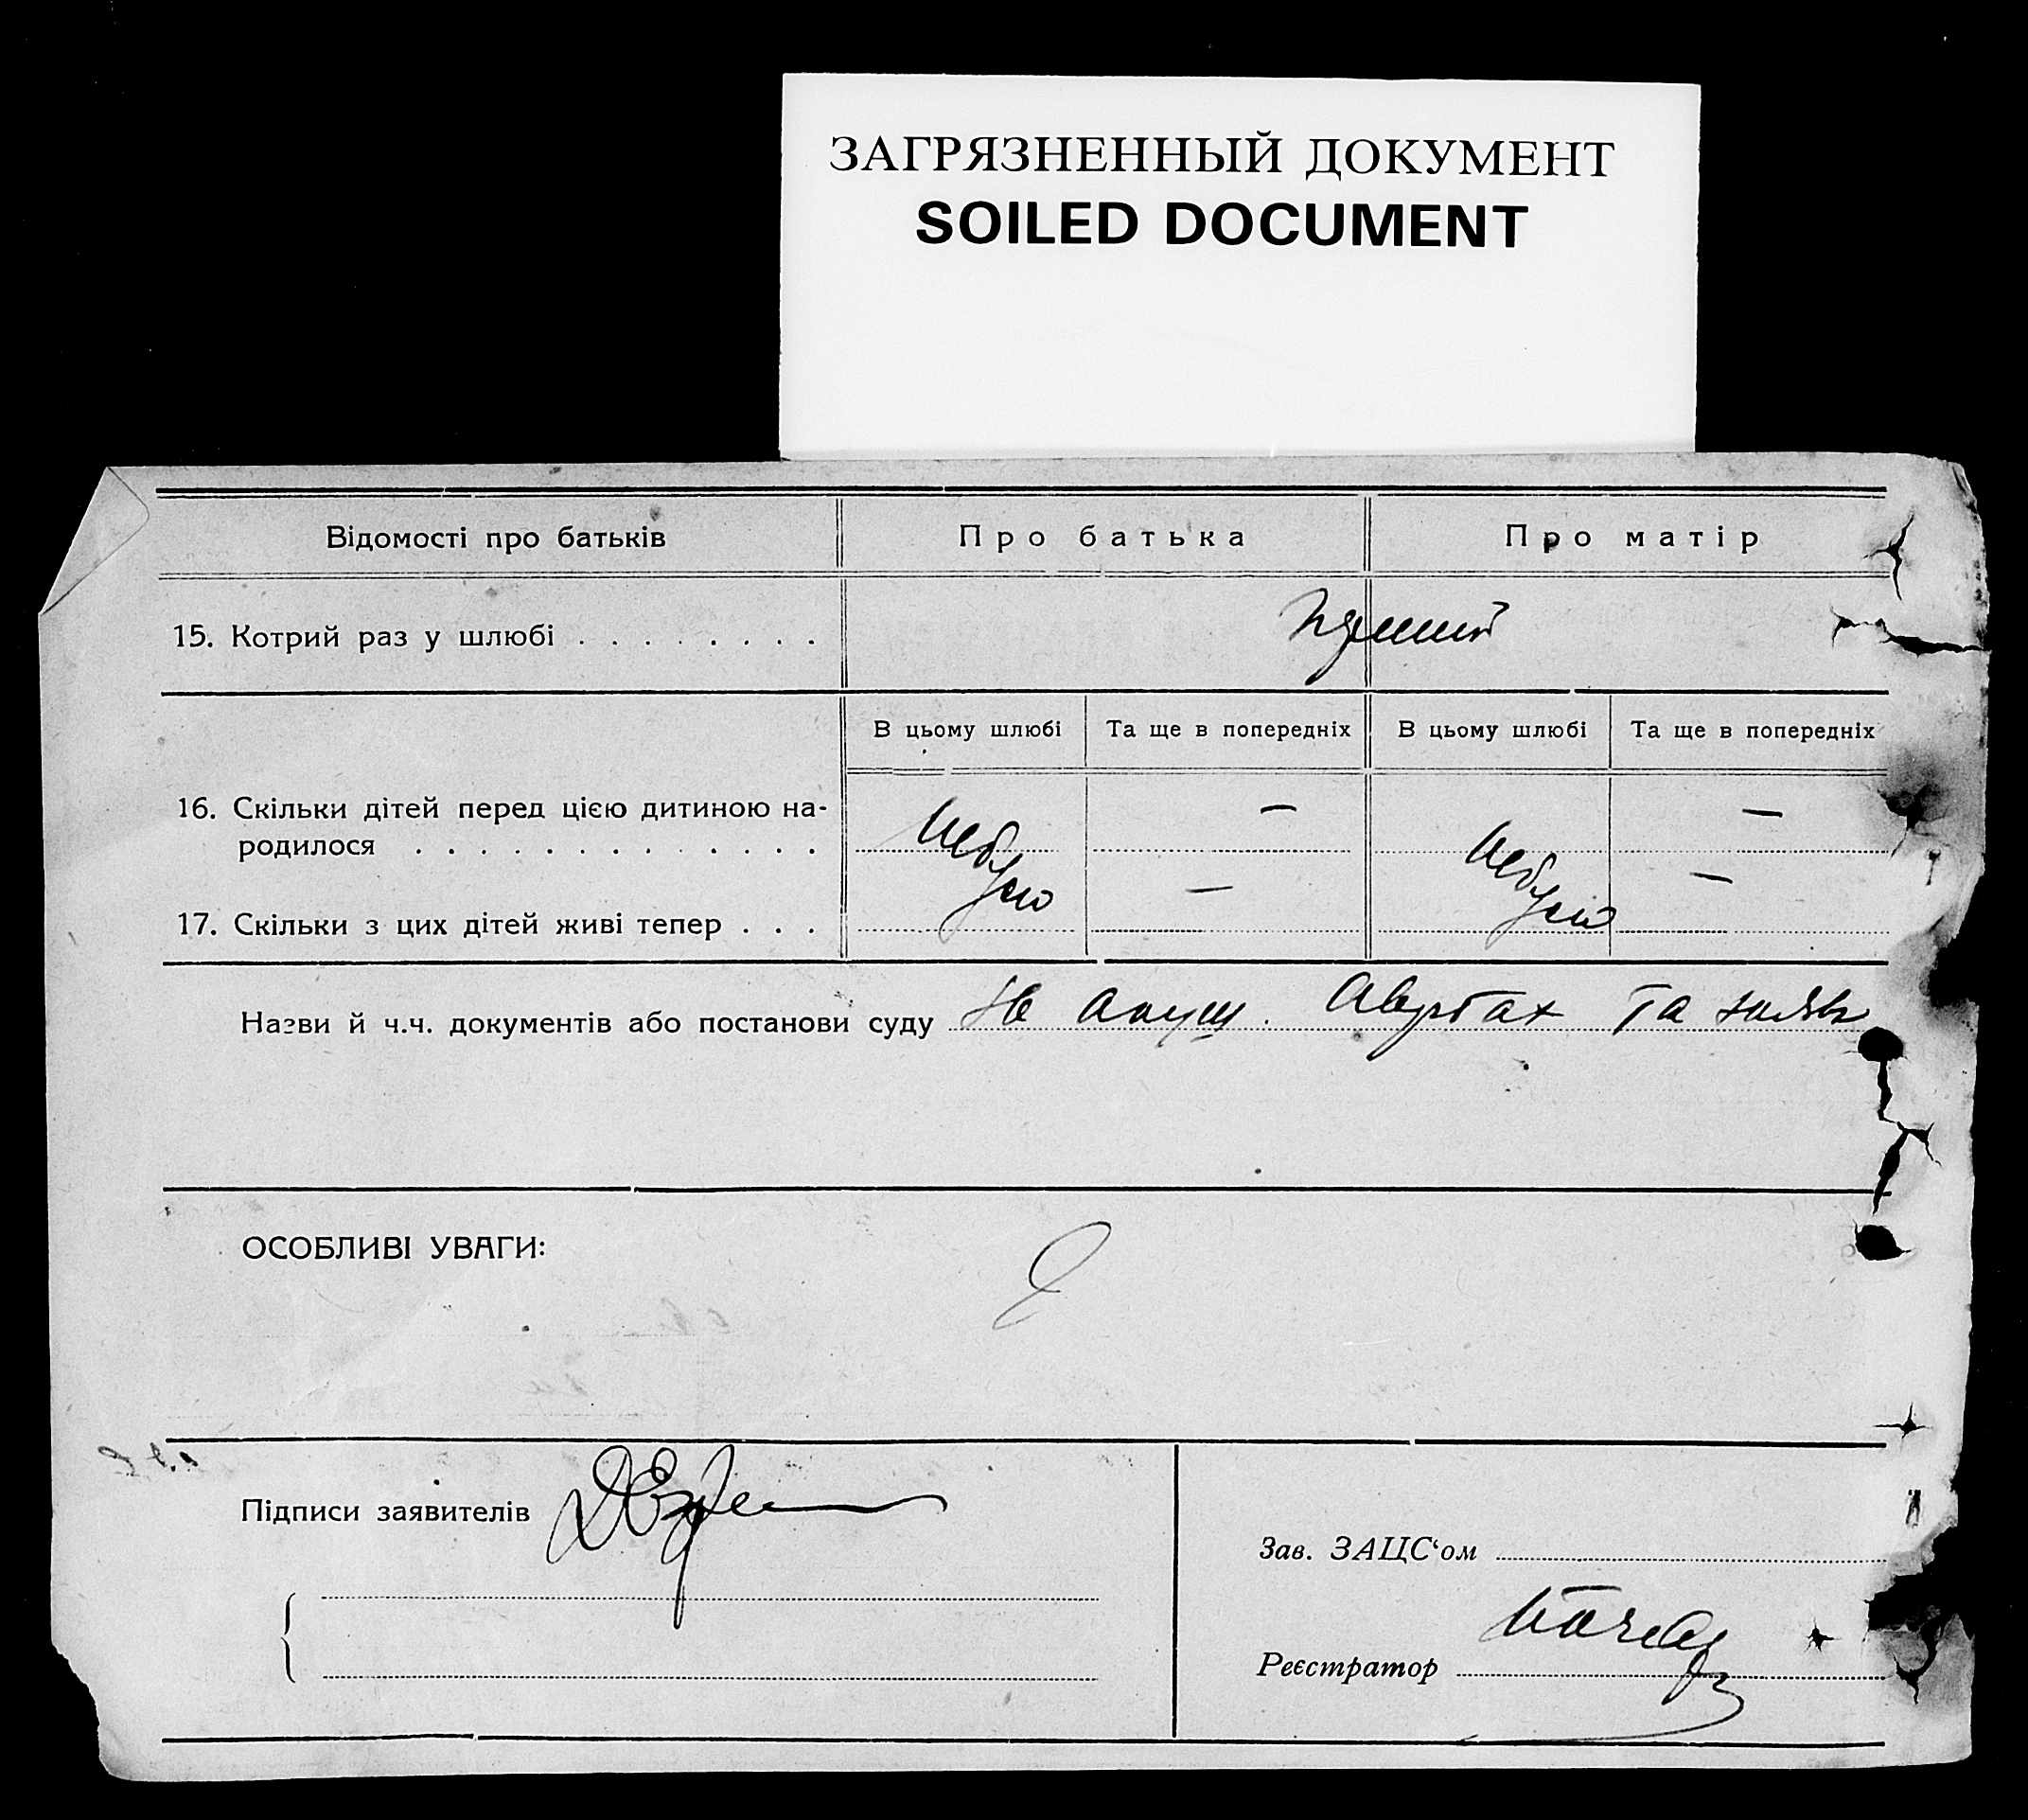 ЗАГРЯЗНЕННЫЙ ДОКУМЕНТ
SOILED DOCUMENT
Відомості про батьків Про батька Про матір
15. Котрий раз у шлюбі . . . . . . . .
В цьому шлюбі Та ще в попередніх В цьому шлюбі Та ще в попередніх
16. Скільки дітей перед цією дитиною на- — —
родилося . . . . . . . . . . . . . небуло небуло
17. Скільки з цих дітей живі тепер . . . — —
Назви й ч.ч. документів або постанови суду та
ОСОБЛИВІ УВАГИ:
Підписи заявителів
Зав. ЗАЦС‘ом
Реєстратор